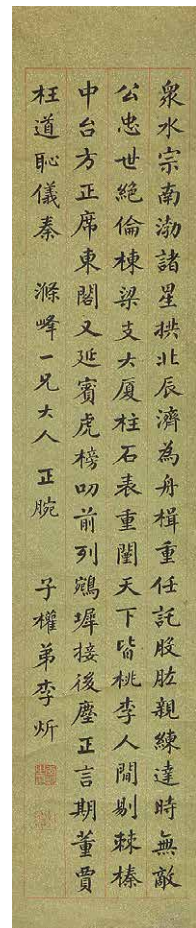 衆水宗南渤諸星拱北辰濟為舟楫重任託股肱親練達時無敵
公忠世絕倫棟梁支大厦柱石表重闉天下皆桃李人間剔棘榛
中台方正席東閣又延賓虎榜叨前列鵷墀接後塵正言期董賈
枉道恥儀秦 滌峰一兄大人正腕 子權弟李炘